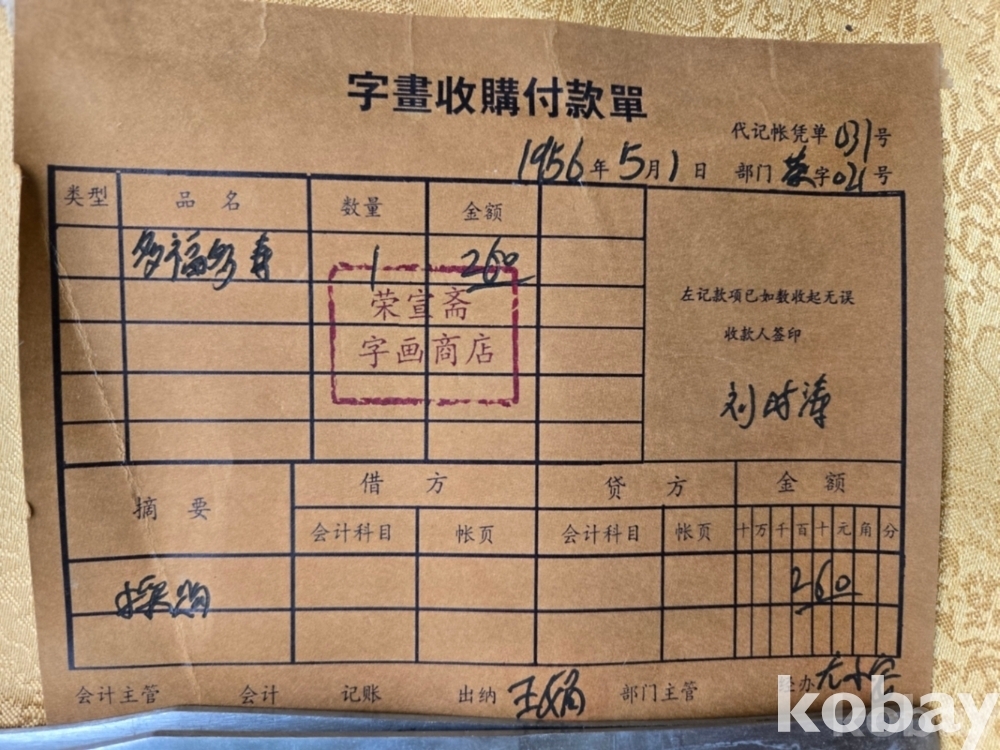 字畫收購付款單
代记帐凭单 031 号
1956 年 5 月 1 日 部门 荣 字 021 号
类型 品名 数量 金额
多福多寿 1 260
荣宣斋
字画商店
左记款项已如数收起无误
收款人签印
刘时
摘要 借方 贷方 金额
会计科目 帐页 会计科目 帐页 十 万 千 百 十 元 角 分
采购 260
会计主管 会计 记账 出纳 王 部门主管 经办
kobay